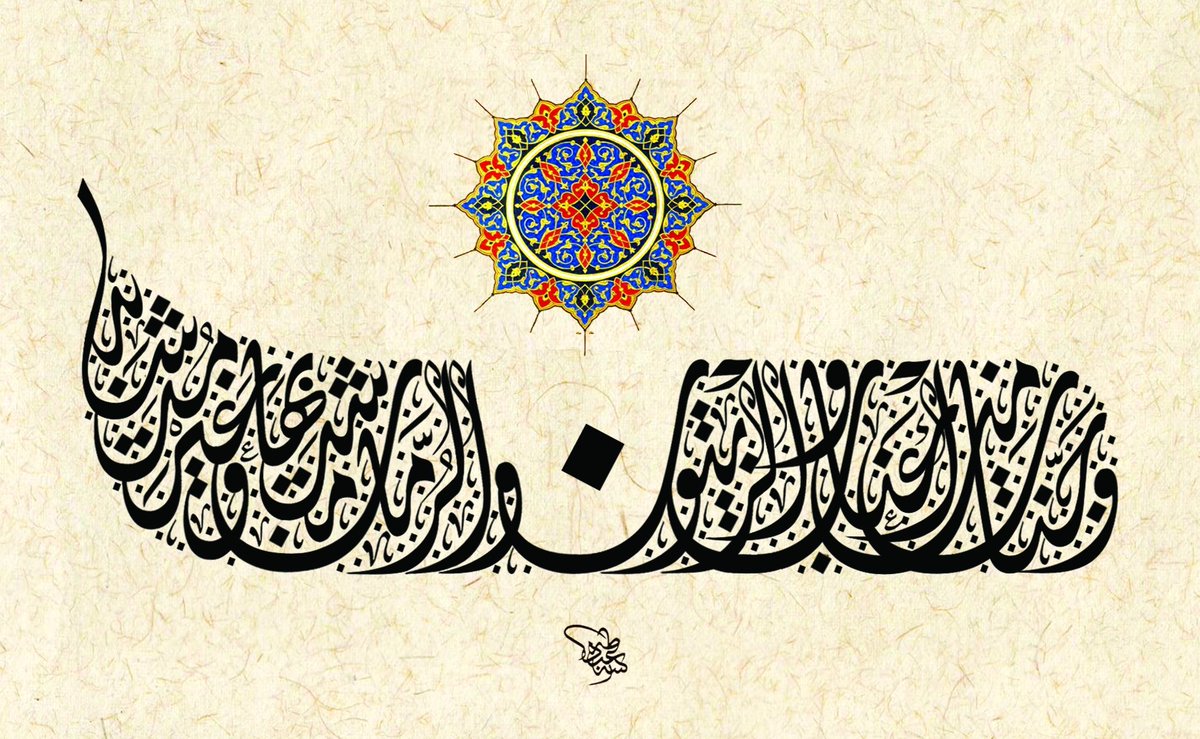 وَجَنَّاتٍ مِنْ أَعْنَابٍ وَالزَّيْتُونَ وَالرُّمَّانَ مُشْتَبِهًا وَغَيْرَ مُتَشَابِهٍ